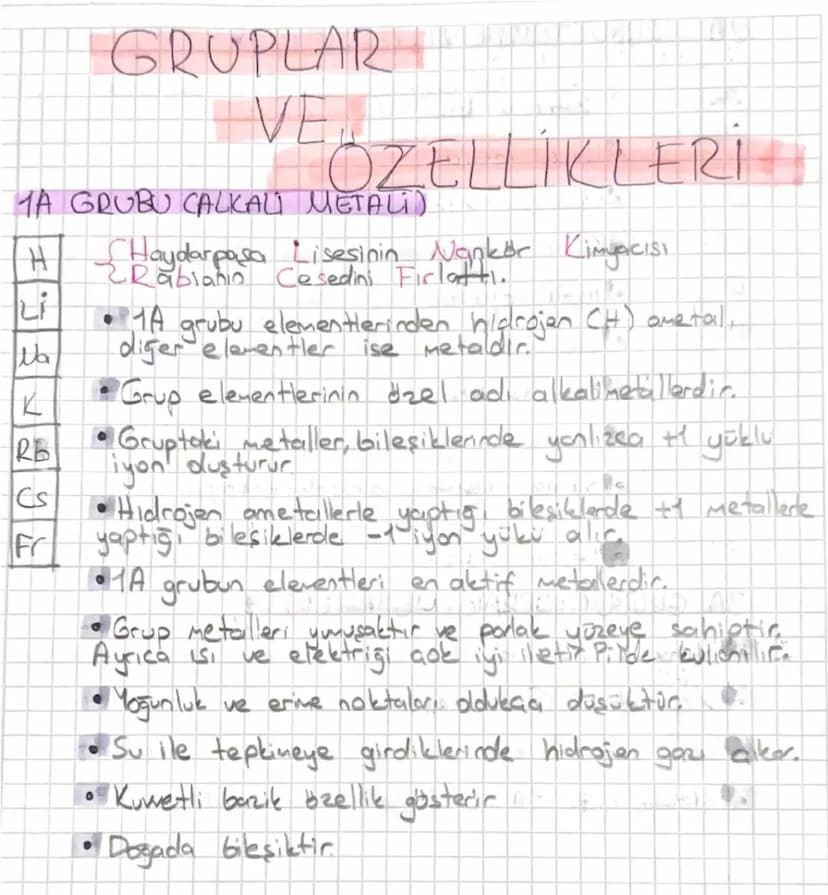 GRUPLAR
VE
ÖZELLİKLERİ
1A GRUBU (ALKALİ METALİ)
H
Li
Na
K
RB
Cs
Fr
Haydarpaşa Lisesinin Nankör Kimyacısı
Rabianın Cesedini Fırlattı.
• 1A grubu elementlerinden hidrojen (H) ametal,
diğer elementler ise metaldir.
• Grup elementlerinin özel adı alkalimetallerdir.
• Gruptaki metaller, bileşiklerinde yanlızca +1 yüklü
iyon oluşturur
• Hidrojen ametallerle yaptığı bileşiklerde +1 metallerle
yaptığı bileşiklerde -1 iyon yükü alır.
• 1A grubun elementleri en aktif metallerdir.
• Grup metalleri yumuşaktır ve parlak yüzeye sahiptir.
Ayrıca ısı ve elektriği çok iyi iletir Pilde kullanılır.
• Yoğunluk ve erime noktaları oldukça düşüktür.
• Su ile tepkimeye girdiklerinde hidrojen gazı çıkar.
• Kuvvetli bazik özellik gösterir
• Doğada bileşiktir.